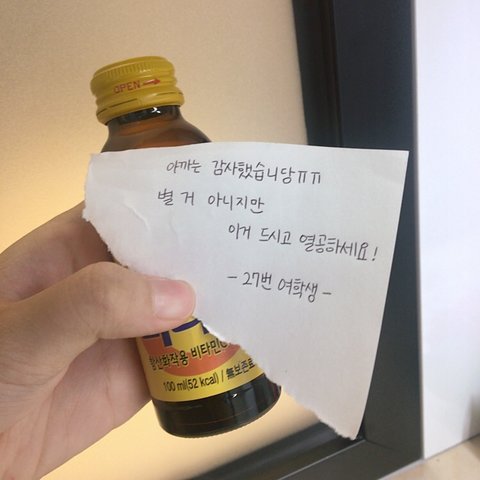 OPEN →
아까는 감사했습니당ㅠㅠ
별 거 아니지만
이거 드시고 열공하세요!
- 27번 여학생 -
항산화작용 비타민C
100 ml(52 kcal) / 無보존료